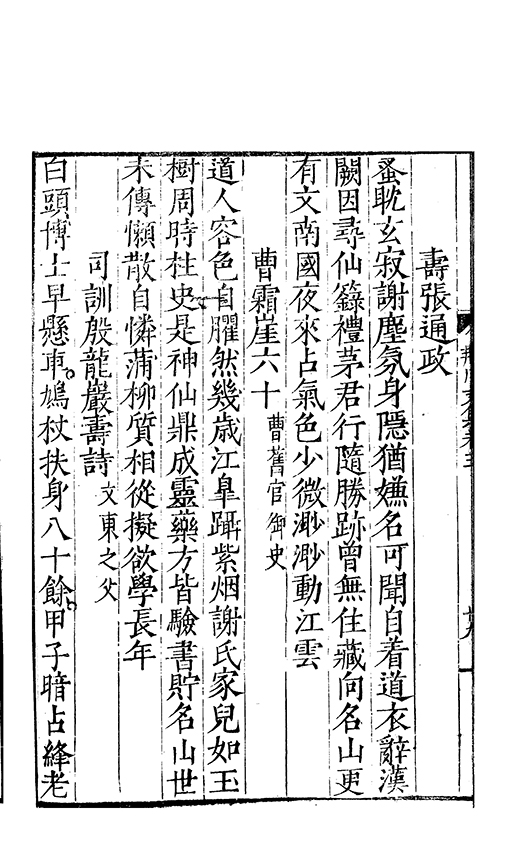 壽張通政
蚤耽玄寂謝塵氛身隱猶嫌名可聞自着道衣辭漢
闕因尋仙籙禮茅君行隨勝跡曾無住藏向名山更
有文南國夜來占氣色少微渺渺動江雲
曹霜崖六十曹舊官御史
道人容色自臞然幾歲江臯躡紫烟謝氏家兒如玉
樹周時柱史是神仙鼎成靈藥方皆驗書貯名山世
未傳懶散自憐蒲柳質相從擬欲學長年
司訓殷龍巖壽詩文東之父
白頭博士早懸車鳩杖扶身八十餘甲子暗占絳老